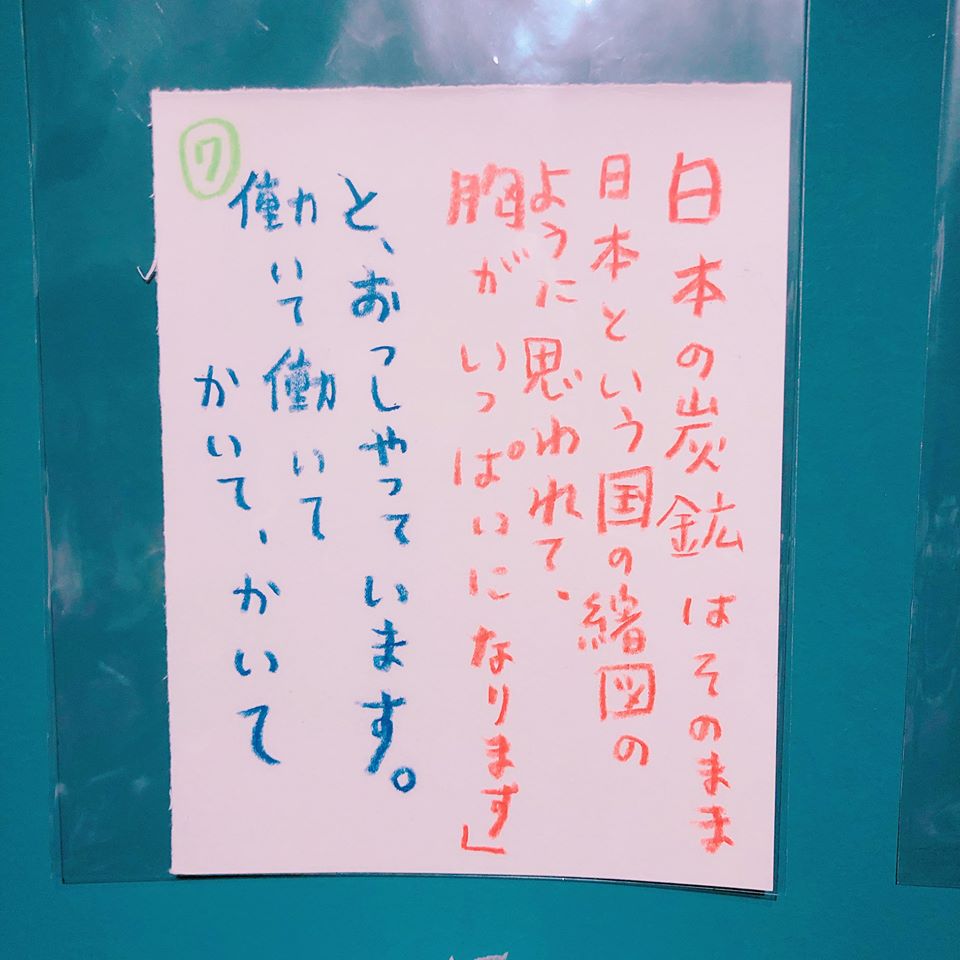 ⑦
日本の炭鉱はそのまま
日本という国の縮図の
ように思われて、
胸がいっぱいになります」
と、おっしゃっています。
働いて働いて
かいて、かいて